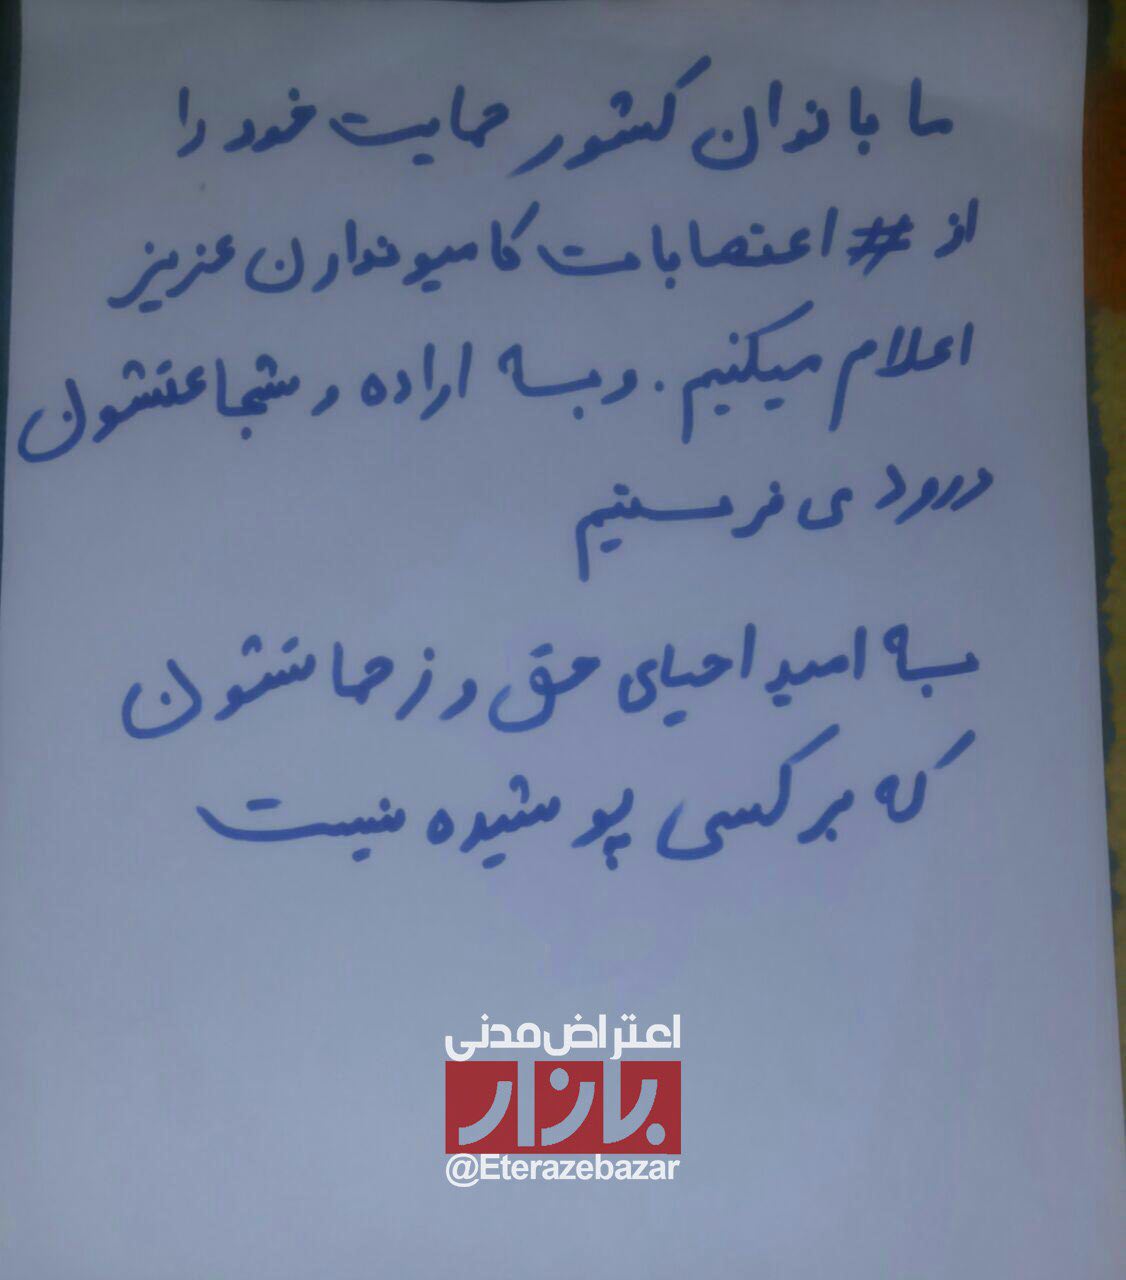 ما بانوان کشور حمایت خود را
از # اعتصابات کامیوندارن عزیز
اعلام میکنیم. و به اراده و شجاعتشون
درود ی فرستیم
به امید احیای حق و زحماتشون
که بر کسی پوشیده نیست
اعتراض مدنی
بازار
@Eterazebazar